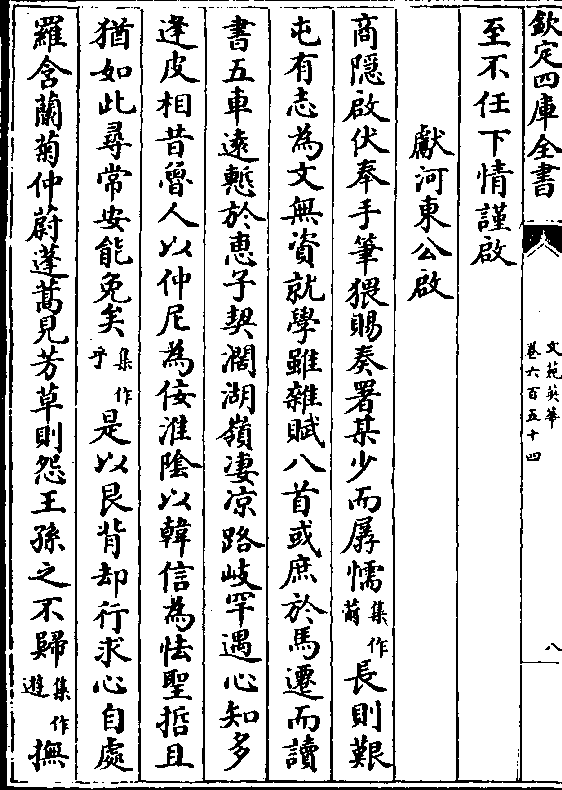 欽定四庫全書
文苑英華
卷六百五十四
八
至不任下情謹啟
獻河東公啟
商隱啟伏奉手筆猥賜奏署某少而孱懦集作薾長則艱
屯有志為文無資就學雖雜賦八首或庶於馬遷而讀
書五車遠慙於惠子契濶湖嶺凄凉路岐罕遇心知多
逢皮相昔魯人以仲尼為佞淮陰以韓信為怯聖哲且
猶如此尋常安能免矣集作乎是以艮背却行求心自處
羅含蘭菊仲蔚蓬蒿見芳草則怨王孫之不歸集作遊撫